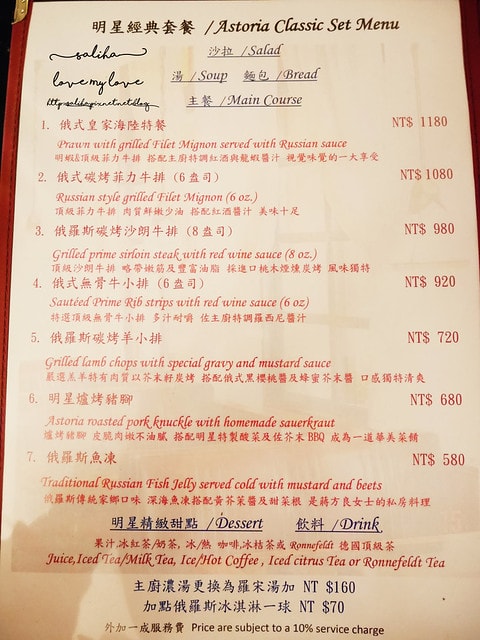 明星經典套餐 / Astoria Classic Set Menu
saliha
love my love
沙拉 / Salad
湯 / Soup 麵包 / Bread
主餐 / Main Course
1. 俄式皇家海陸特餐 NT$ 1180
Prawn with grilled Filet Mignon served with Russian sauce
明蝦&頂級菲力牛排 搭配主廚特調紅酒與龍蝦醬汁 視覺味覺的一大享受
2. 俄式碳烤菲力牛排 (6 盎司) NT$1080
Russian style grilled Filet Mignon (6 oz.)
頂級菲力牛排 肉質鮮嫩少油 搭配紅酒醬汁 美味十足
3. 俄羅斯碳烤沙朗牛排 (8 盎司) NT$ 980
Grilled prime sirloin steak with red wine sauce (8 oz.)
頂級沙朗牛排 略帶嫩筋及豐富油脂 採進口桃木煙燻炭烤 風味獨特
4. 俄式無骨牛小排 (6 盎司) NT$ 920
Sautéed Prime Rib strips with red wine sauce (6 oz)
特選頂級無骨牛小排 多汁耐嚼 佐主廚特調羅西尼醬汁
5. 俄羅斯碳烤羊小排 NT$ 720
Grilled lamb chops with special gravy and mustard sauce
嚴選羔羊特有肉質以芥末籽炭烤 搭配俄式黑櫻桃醬及蜂蜜芥末醬 口感獨特清爽
6. 明星爐烤豬腳 NT$ 680
Astoria roasted pork knuckle with homemade sauerkraut
爐烤豬腳 皮脆肉嫩不油膩 搭配明星特製酸菜及佐芥末 BBQ 成為一道華美菜餚
7. 俄羅斯魚凍 NT$ 580
Traditional Russian Fish Jelly served cold with mustard and beets
俄羅斯傳統家鄉口味 深海魚凍搭配黃芥茉醬及甜菜根 是蔣方良女士的私房料理
明星精緻甜點 / Dessert 飲料 / Drink
果汁,冰紅茶/奶茶, 冰/熱 咖啡,冰桔茶或 Ronnefeldt 德國頂級茶
Juice,Iced Tea/Milk Tea, Ice/Hot Coffee , Iced citrus Tea or Ronnefeldt Tea
主廚濃湯更換為羅宋湯加 NT $160
加點俄羅斯冰淇淋一球 NT $70
外加一成服務費 Price are subject to a 10% service charge